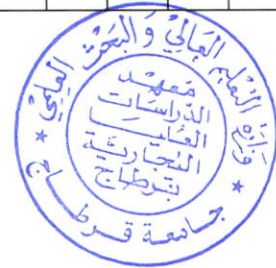 وزارة التعليم العالي و البحث العلمي
معهد
الدراسات
العليا
التجارية
بقرطاج
جامعة قرطاج